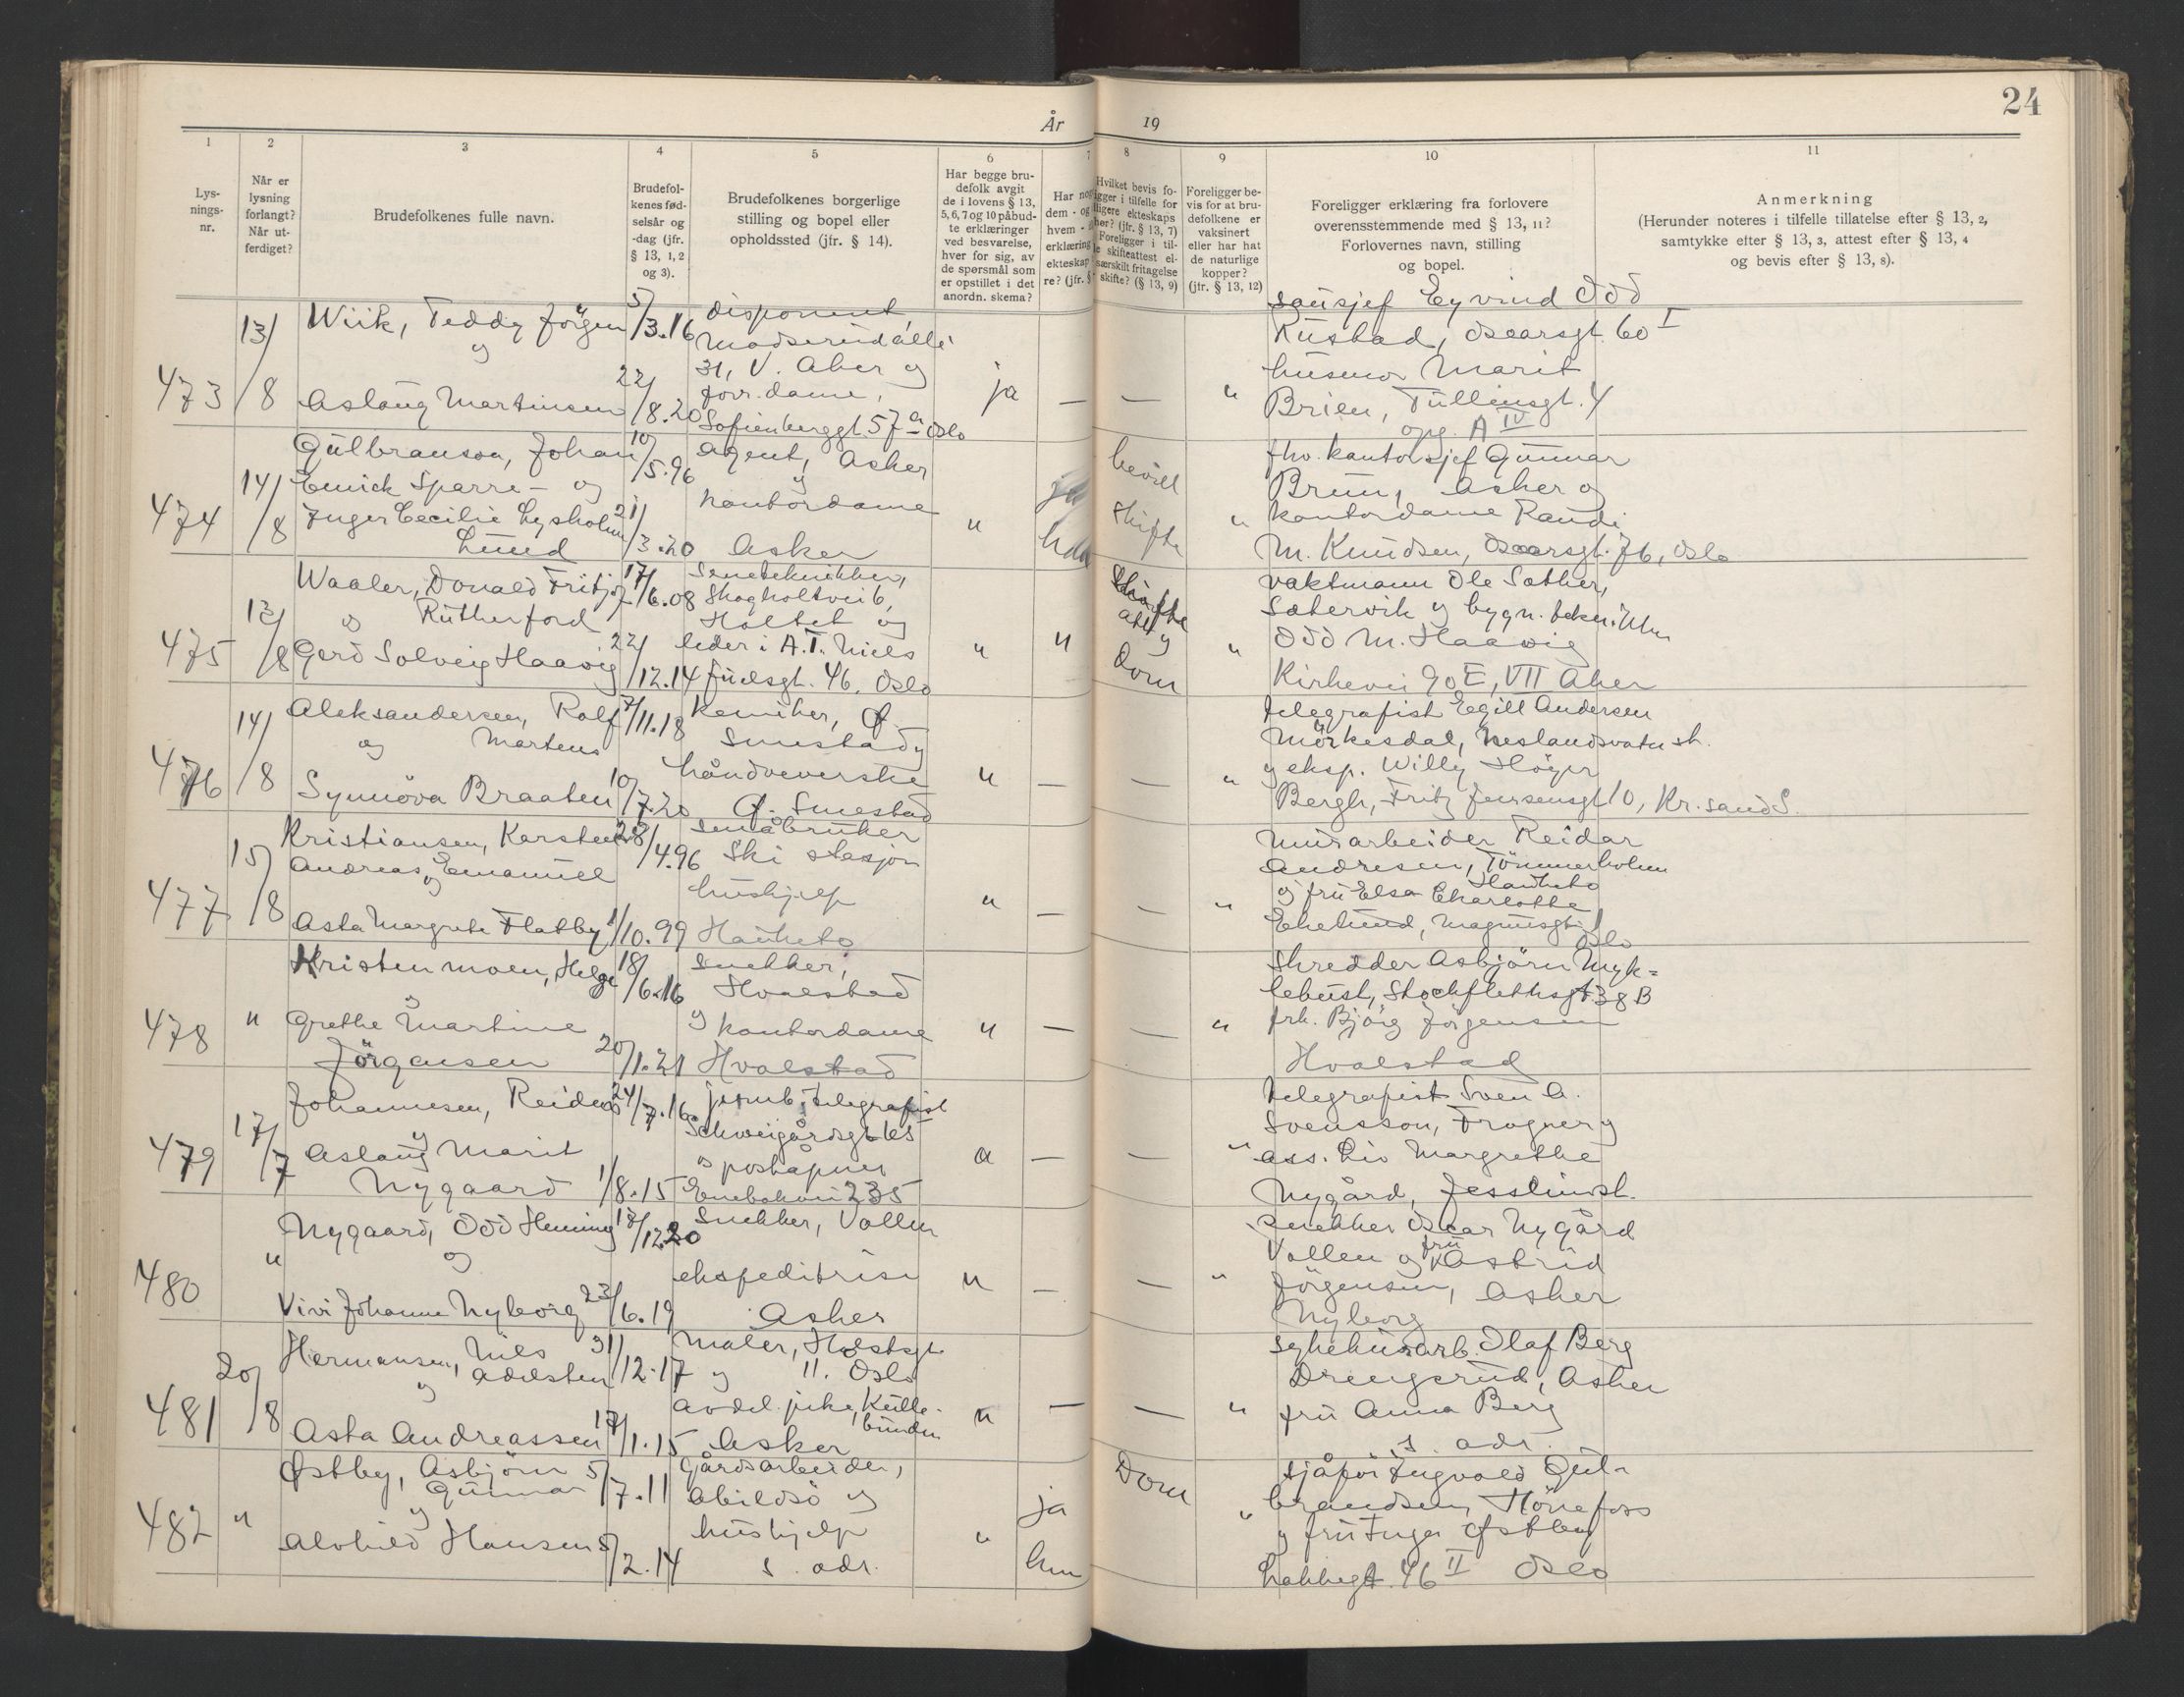 År 19
24
1
2
3
4
5
6
7
8
9
10
11
Lys-
nings-
nr.
Når er
lysning
forlangt?
Når ut-
ferdiget?
Brudefolkenes fulle navn.
Brudefol-
kenes fød-
selsår og
-dag (jfr.
§ 13, 1, 2
og 3).
Brudefolkenes borgerlige
stilling og bopel eller
opholdssted (jfr. § 14).
Har begge bru-
defolk avgit
de i lovens § 13,
5, 6, 7 og 10 påbud-
te erklæringer
ved besvarelse,
hver for sig, av
de spørsmål som
er opstillet i det
anordn. skema?
Har nog
dem - og
hvem -
erklæring
ekteskap
re? (jfr. §
Hvilket bevis fo-
ligger i tilfelle for
tidligere ekteskaps
ophør? (jfr. § 13, 7)
Foreligger i til-
felle skifteattest el-
særskilt fritagelse
skifte? (§ 13, 9)
Foreligger be-
vis for at bru-
defolkene er
vaksinert
eller har hat
de naturlige
kopper?
(jfr. § 13, 12)
Foreligger erklæring fra forlovere
overensstemmende med § 13, 11?
Forlovernes navn, stilling
og bopel.
Anmerkning
(Herunder noteres i tilfelle tillatelse efter § 13, 2,
samtykke efter § 13, 3, attest efter § 13, 4
og bevis efter § 13, 8).
473
13/8
Wiik, Teddy Jörgen
og
Aslaug Martinsen
5/3.16
22/8.20
disponent,
Madserud allé
31, V. Aker og
forr.dame,
Sofienberggt 57a Oslo
ja
—
—
"
Eyvind Odd
Rustad, Oscarsgt. 60 I
husmor Marit
Brien, Tullinsgt. 4
opg. A IV
474
14/8
Gulbranson, Johan
Emick Sparre- og
Inger Cecilie Lysholm
Lund
10/5.96
21/3.20
agent, Asker
og
kontordame
Asker
"
bevill
skifte
"
fhv. kontorsjef Gunnar
Bruun, Asker og
kontordame Randi
M. Knudsen, Oscarsgt. 76, Oslo
475
13/8
Waaler, Donald Fritjof
og Rutherford
Gerd Solveig Haavig
17/6.08
22/12.14
Skogholtvei 6,
Holtet og
leder i A.T. Niels
Juelsgt. 46, Oslo
"
"
skifte
att
og
Dom
"
vaktmann Ole Sæther,
Sætervik og bygn. tekniker
Odd M. Haavig
Kirkevei 90 E, VII Aker
476
14/8
Aleksandersen, Rolf
og Martens
Synnöva Braaten
7/11.18
10/7.20
kemiker, Ø.
Smestad og
håndveverske
Ø. Smestad
"
—
—
"
telegrafist Egill Andersen
Mörkesdal, Neslandsvatn st.
og eksp. Willy Höyer
Bergh, Fritz Jensensgt 10, Kr.sand S.
477
15/8
Kristiansen, Karsten
Andreas Emanuel
og
Asta Margrete Flatby
28/4.96
1/10.99
småbruker
Ski stasjon
hushjelp
Hauketo
"
—
—
"
murarbeider Reidar
Andresen, Tömmerholen
Hauketo
og fru Elsa Charlotte
Ekelund, Magnusgt. 1
Oslo
478
"
Kristen moen, Helge
og
Grethe Martine
Jörgensen
18/6.16
20/1.21
snekker,
Hvalstad
og kontordame
Hvalstad
"
—
—
"
skredder Asbjörn Myk=
lebust, Stockflethsgt 38 B
frk. Bjørg Jörgensen
Hvalstad
479
17/7
Johannesen, Reidar
og
Aslaug Marit
Nygaard
24/7.16
1/8.15
jernb. telegrafist
Schweigårdsgt 65
og poståpner
Enebakvei 235
a
—
—
"
telegrafist Sven A.
Svensson, Frogner og
ass. Liv Margrethe
Nygård, Jessheim st.
480
"
Nygaard, Odd Henning
og
Vivi Johanne Nyborg
18/12.20
23/6.19
snekker, Vollen
ekspeditrise
Asker
"
—
—
"
snekker Oscar Nygård
Vollen og fru Astrid
Jörgensen, Asker
Nyborg
481
20/8
Hermansen, Nils
Adelsten
og
Asta Andreassen
31/12.17
17/1.15
maler, Holstsgt
og 11. Oslo
avdel. pike,
Asker
"
—
—
"
sykehusarb. Olaf Berg
Drengsrud, Asker
fru Anna Berg
s. adr.
482
"
Østby, Asbjörn
Gunnar
og
Alvhild Hansen
5/7.11
/2.14
gårdsarbeider,
Abildsö og
hushjelp
s. adr.
"
ja
hun
Dom
"
sjåför Ingvald Gul-
brandsen, Hönefoss
og fru Inger Østby
Lakkegt. 46 II Oslo